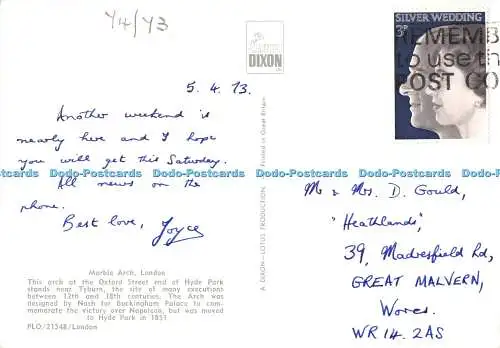 Y4/Y3
DIXON
SILVER WEDDING
3P
REMEMB
to use th
POST CO
5.4.73.
Another weekend is
nearly here and I hope
you will get this Saturday.
All news on the
phone.
Best love, Joyce
Dodo-Postcards Dodo-Postcards Dodo-Postcards Dodo-Postcards Dodo-Postcards Dodo-Postcards
Marble Arch, London
This arch at the Oxford Street end of Hyde Park
stands near Tyburn, the site of many executions
between 12th and 18th centuries. The Arch was
designed by Nash for Buckingham Palace to com-
memorate the victory over Napoleon, but was moved
to Hyde Park in 1851
PLO/21548/London
A DIXON—LOTUS PRODUCTION
Printed in Great Britain
Mr & Mrs. D. Gould,
"Heathlands",
39, Madresfield Rd,
GREAT MALVERN,
Worcs.
WR14. 2AS